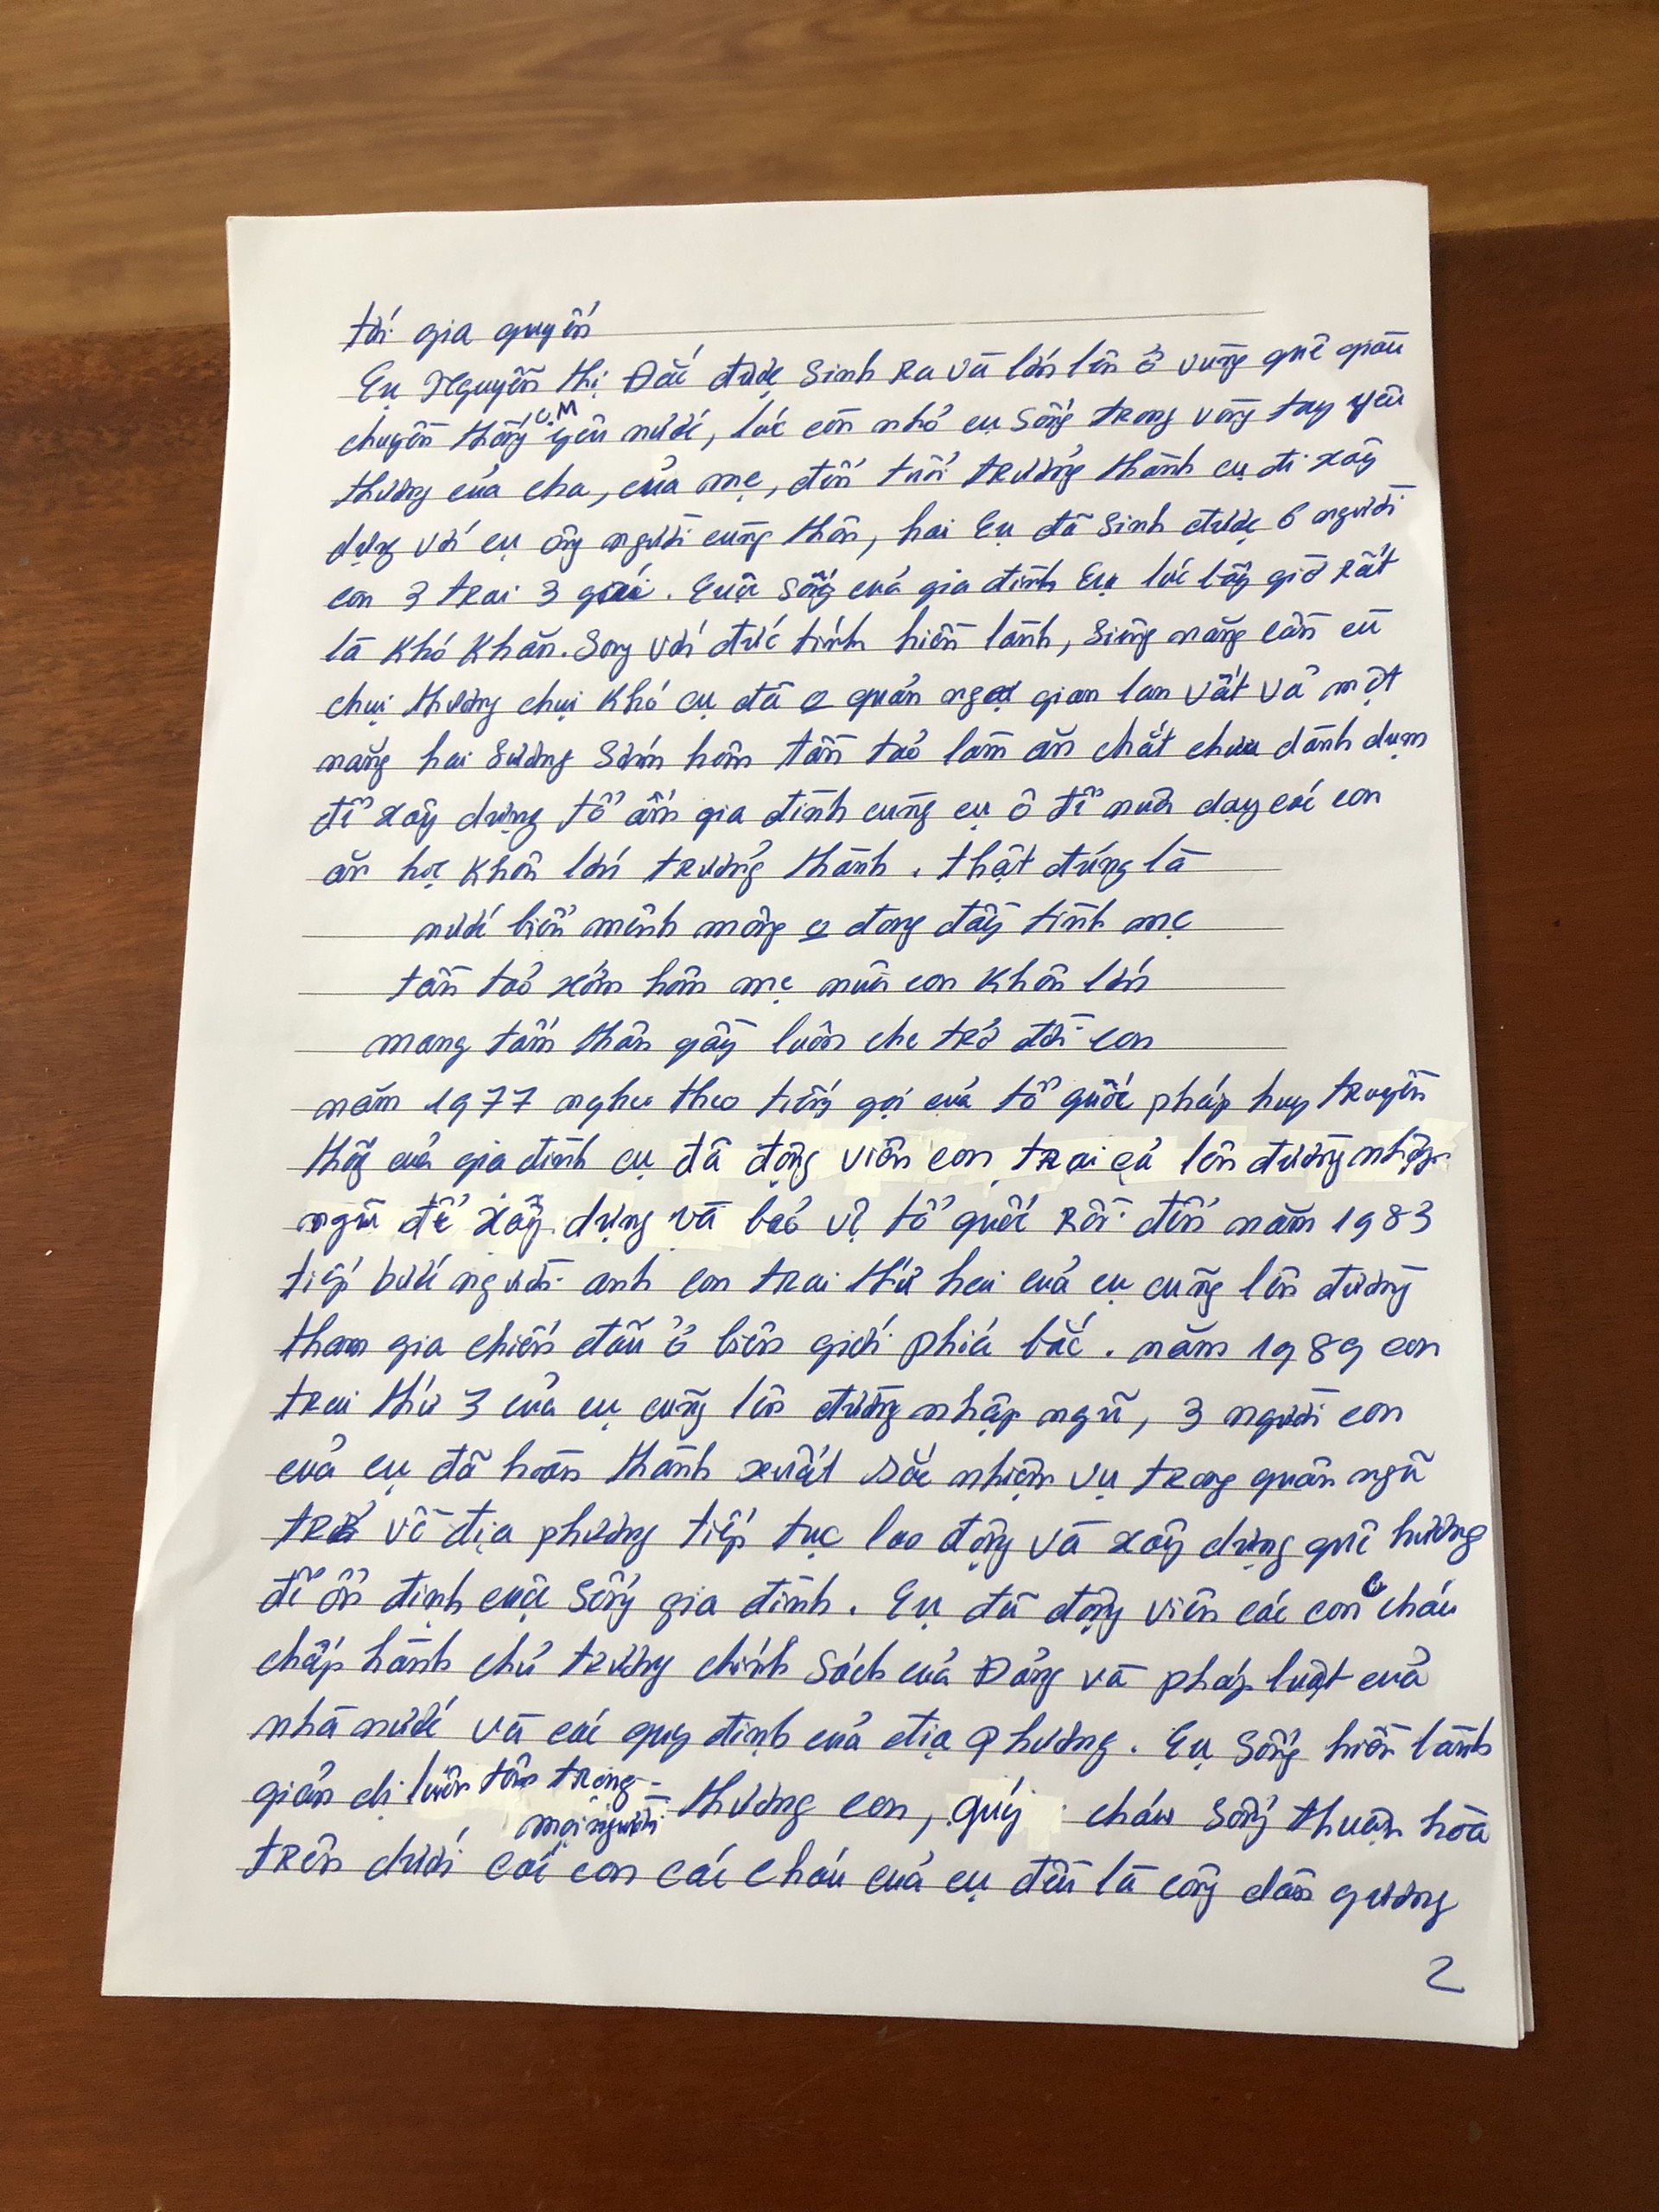 tới gia quyến
Cụ Nguyễn Thị Đắc được sinh ra và lớn lên ở vùng quê giàu
chuyền thống C.M yêu nước, lúc còn nhỏ cụ sống trong vòng tay yêu
thương của cha, của mẹ, đến tuổi trưởng thành cụ đi xây
dựng với cụ ông người cùng thôn, hai cụ đã sinh được 6 người
con 3 trai 3 gái. Cuộc sống của gia đình cụ lúc bấy giờ rất
là khó khăn. Song với đức tính hiền lành, siêng năng cần cù
chịu thương chịu khó cụ đã quản ngại gian lan vất vả một
nắng hai sương sớm hôm tần tảo làm ăn chắt chiu dành dụm
để xây dựng tổ ấm gia đình cùng cụ ô để nuôi dạy các con
ăn học khôn lớn trưởng thành. thật đúng là
nước biển mênh mông đong đầy tình mẹ
tần tảo xớm hôm mẹ nuôi con khôn lớn
mang tấm thân gầy luôn che trở đời con
năm 1977 nghe theo tiếng gọi của tổ quốc pháp huy truyền
thống của gia đình cụ đã động viên con trai cả lên đường nhập
ngũ để xây dựng và bảo vệ tổ quốc rồi đến năm 1983
tiếp bước người anh con trai thứ hai của cụ cũng lên đường
tham gia chiến đấu ở biên giới phía bắc. năm 1989 con
trai thứ 3 của cụ cũng lên đường nhập ngũ, 3 người con
của cụ đã hoàn thành xuất sắc nhiệm vụ trong quân ngũ
trở về địa phương tiếp tục lao động và xây dựng quê hương
để ổn định cuộc sống gia đình. Cụ đã động viên các con cháu
chấp hành chủ trương chính sách của Đảng và pháp luật của
nhà nước và các quy định của địa phương. Cụ sống hiền lành
giản dị luôn tôn trọng mọi người thương con, quý cháu sống thuận hòa
trên dưới các con các cháu của cụ đều là công dân gương
2